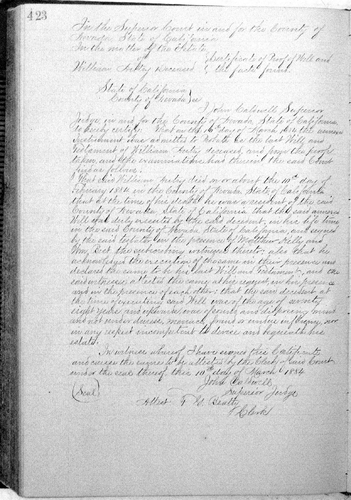 423
In the Superior Court in and for the County of
Nevada, State of California
In the matter of the Estate
of Certificate of Proof of Will and
William Deceased the facts found
State of California
County of Nevada ss
I John Caldwell Superior
Judge in and for the County of Nevada State of California
do hereby certify That on the 10th day of March 1884 the annexed
instrument was admitted to probate as the last Will and
testament of William deceased and from the proofs
taken and the examination had therein the said Court
finds as follows:
That said William died on or about the 10th day of
February 1884 in the County of Nevada State of California
that at the time of his death he was a resident of the said
County of Nevada State of California that the said annexed
Will was duly executed by the said decedent, in his life time
in the said County of Nevada State of California, and signed
by the said testator in the presence of Matthew Kelly and
Wm. the subscribing witnesses thereto also that he
acknowledged the execution of the same in their presence and
declared the same to be his last Will and testament, and the
said witnesses attested the same at his request in his presence
and in the presence of each other; that the said decedent at
the time of executing said Will was of the age of seventy
eight years and upwards, was of sound and disposing mind
and not under duress, menace, fraud or undue influence, nor
in any respect incompetent to devise and bequeath his
estate.
In witness whereof I have signed this Certificate
and caused the same to be attested by the Clerk of said Court
under the seal thereof this 10th day of March 1884
John Caldwell
(Seal) Superior Judge
Attest
Clerk